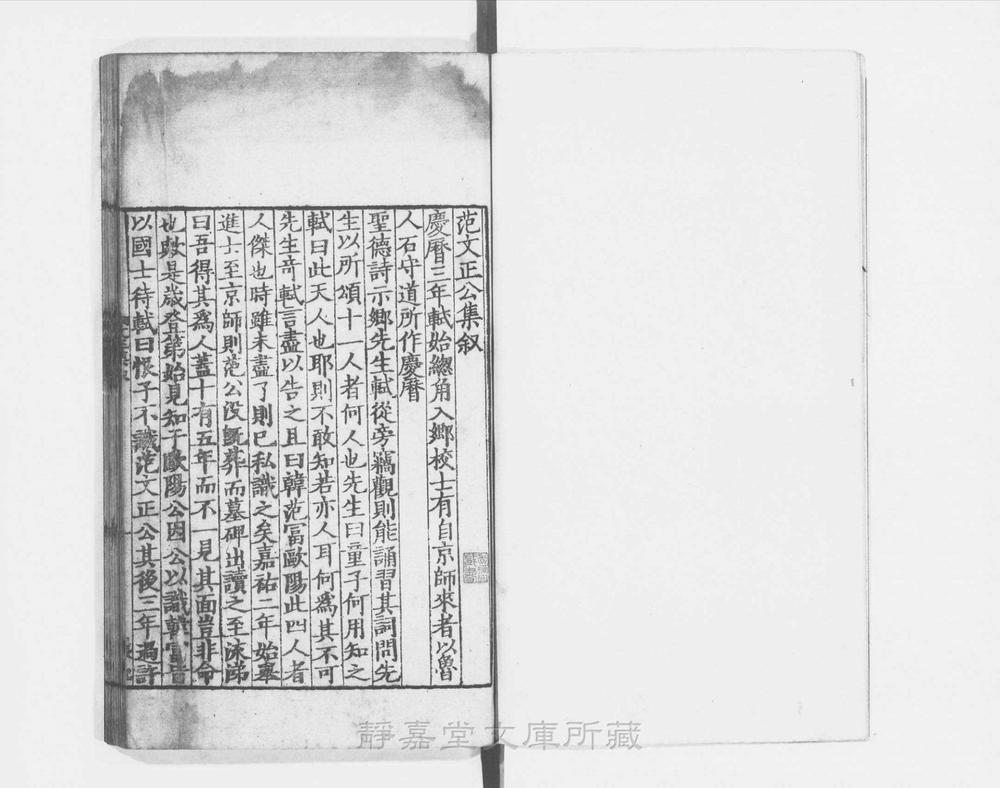 范文正公集叙
慶曆三年軾始緫角入鄉校士有自京師來者以魯
人石守道所作慶曆
聖德詩示鄉先生軾從旁竊觀則能誦習其詞問先
生以所頌十一人者何人也先生曰童子何用知之
軾曰此天人也耶則不敢知若亦人耳何爲其不可
先生竒軾言盡以告之且曰韓范冨歐陽此四人者
人傑也時雖未盡了則已私識之矣嘉祐二年始舉
進士至京師則范公没旣葬而墓碑出讀之至流涕
曰吾得其爲人蓋十有五年而不一見其面豈非命
也歟是歲登第始見知于歐陽公因公以識韓冨皆
以國士待軾曰恨子不識范文正公其後三年過許
靜嘉堂文庫所藏